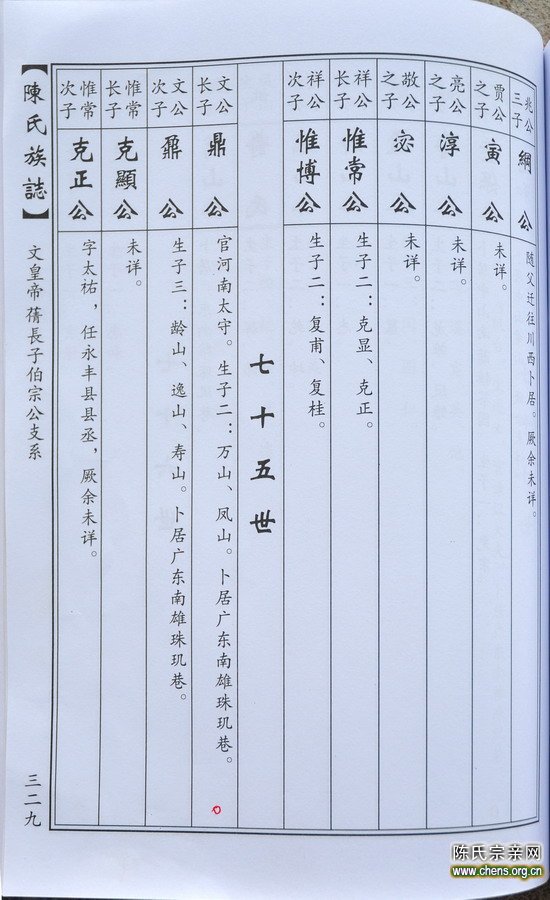 兆公三子
綱公
随父迁往川西卜居。厥余未详。
贾公之子
寅公
未详。
亮公之子
淳公
未详。
敬公之子
宓公
未详。
祥公长子
惟常公
生子二：克显、克正。
祥公次子
惟博公
生子二：复甫、复桂。
七十五世
文公长子
鼎公
官河南太守。生子二：万山、凤山。卜居广东南雄珠玑巷。
文公次子
鼐公
生子三：龄山、逸山、寿山。卜居广东南雄珠玑巷。
惟常长子
克顯公
未详。
惟常次子
克正公
字太祐，任永丰县县丞，厥余未详。
【陳氏族誌】
文皇帝蒨長子伯宗公支系
三二九
陈氏宗亲网
www.chens.org.cn